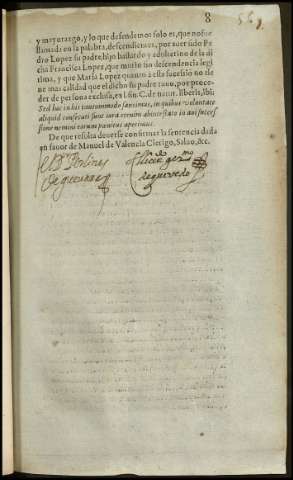 8
y mayorazgo, y lo que defendemos solo es, que no fue
llamada en la palabra, descendientes, por auer sido Pe
dro Lopez su padre hijo bastardo y adulterino de la di
cha Francisca Lopez, que murio sin descendencia legi
tima, y que Maria Lopez quanto a esta sucession no tie
ne mas calidad que el dicho su padre tuuo, por proce-
der de persona exclusa, en l. fin C. de natur. liberis, ibi:
Sed hac in his tantummodo sancimus, in quibus voluntate
aliquid consecuti sunt iura eorum ab intestato in aui succes
sione nemini eorum penitus aperimus.
De que resulta deuerse confirmar la sentencia dada
en fauor de Manuel de Valencia Clerigo, Saluo, &c.